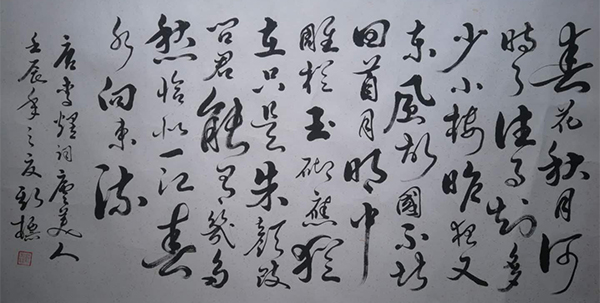 春花秋月何
時了往事知多
少小楼昨夜又
东風故國不堪
回首月明中
雕栏玉砌應猶
在只是朱顏改
问君能有幾多
愁恰似一江春
水向東流
唐李煜词虞美人
壬辰年之夏